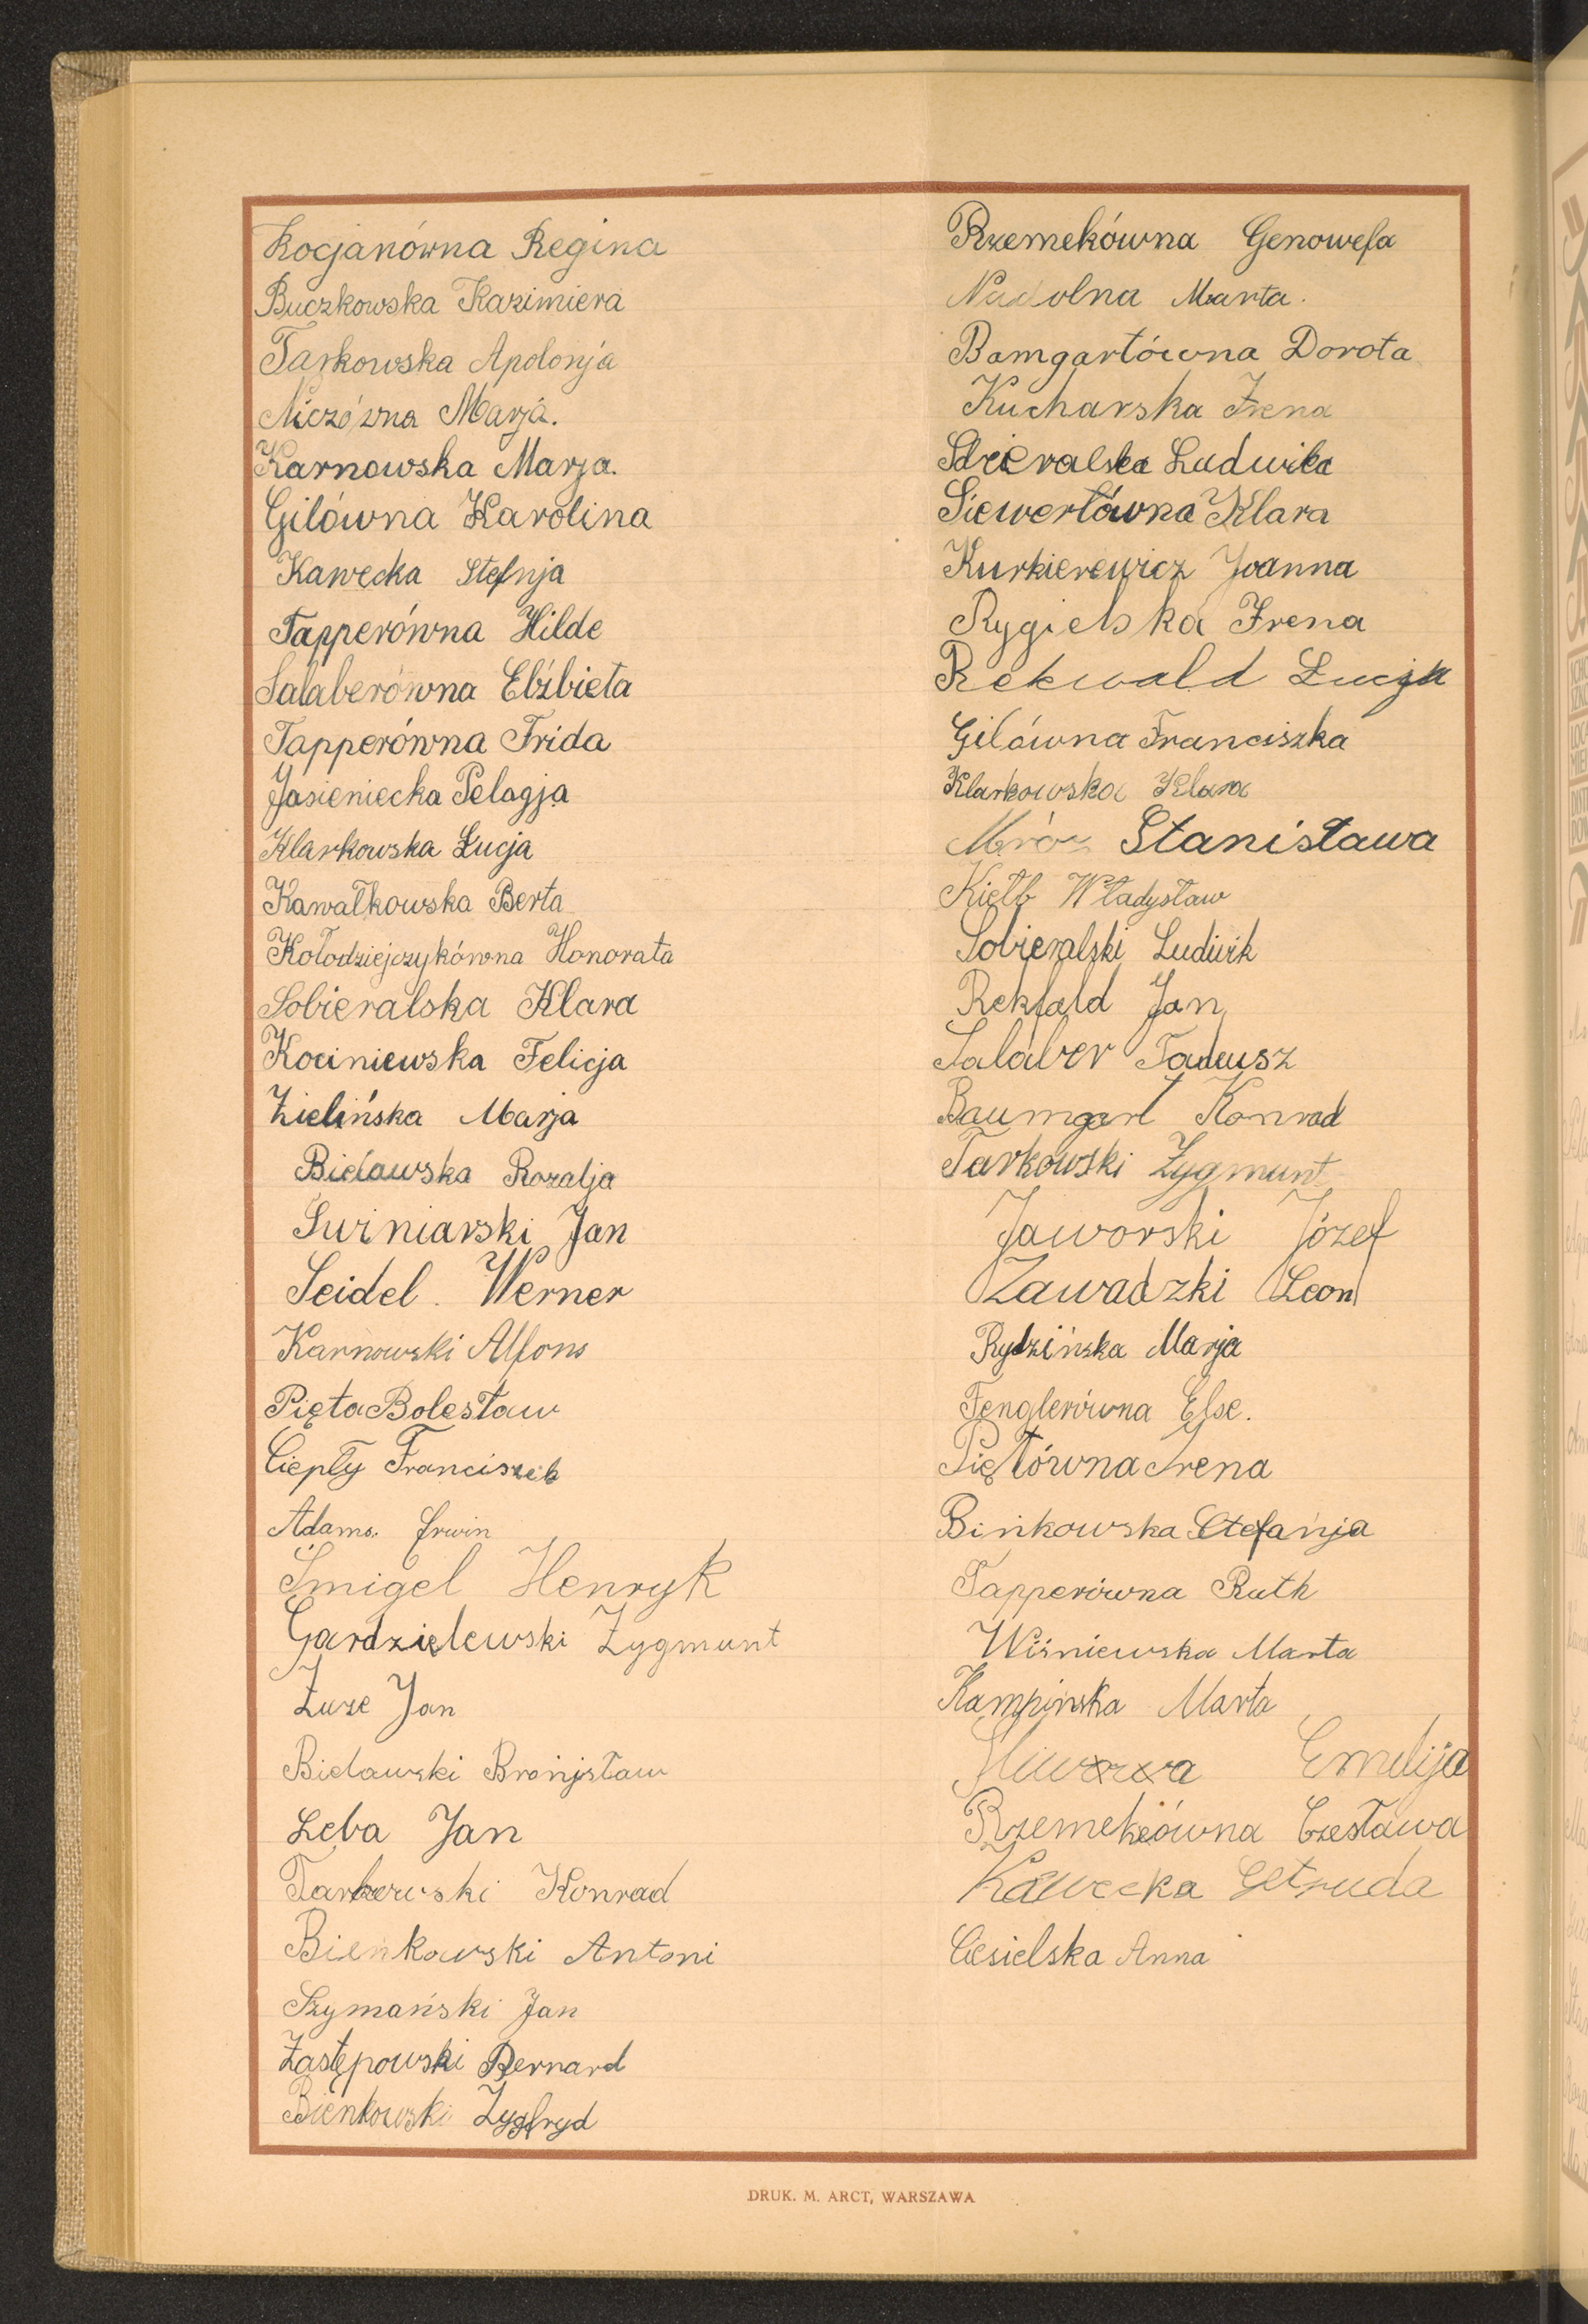 Kocjanówna Regina
Buczkowska Kazimiera
Tarkowska Apolonja
Niczówna Marja.
Karnowska Marja.
Gilówna Karolina
Kawecka Stefnja
Tapperówna Hilde
Salaberówna Elżbieta
Tapperówna Frida
Jasieniecka Pelagja
Klarkowska Łucja
Kawałkowska Berta
Kołodziejczykówna Honorata
Sobieralska Klara
Kociniewska Felicja
Zielińska Marja
Bielawska Rozalja
Swiniarski Jan
Seidel. Werner
Karnowski Alfons
Pięta Bolesław
Ciepły Franciszek
Adams. Erwin
Śmigel Henryk
Gardzielewski Zygmunt
Zuze Jan
Bielawski Bronjsław
Leba Jan
Tarkowski Konrad
Bienkowski Antoni
Szymański Jan
Zastępowski Bernard
Bienkowski Zygfryd
Rzemekówna Genowefa
Nadolna Marta.
Bamgartówna Dorota
Kucharska Irena
Ludwika
Siewertówna Klara
Kurkierewicz Joanna
Rygielska Irena
Rekwald Łucja
Gilówna Franciszka
Klarkowska Klara
Mróz Stanisława
Kiełb Władysław
Sobieralski Ludwik
Rekfald Jan
Salaber Tadeusz
Baumgart Konrad
Tarkowski Zygmunt
Jaworski Józef
Zawadzki Leon
Rydzińska Marja
Fenglerówna Else.
Piętówna Irena
Binkowska Stefanja
Tapperówna Ruth
Wiśniewska Marta
Kampinska Marta
Emelija
Rzemekówna Czesława
Kawecka Getruda
Ciesielska Anna
DRUK. M. ARCT, WARSZAWA